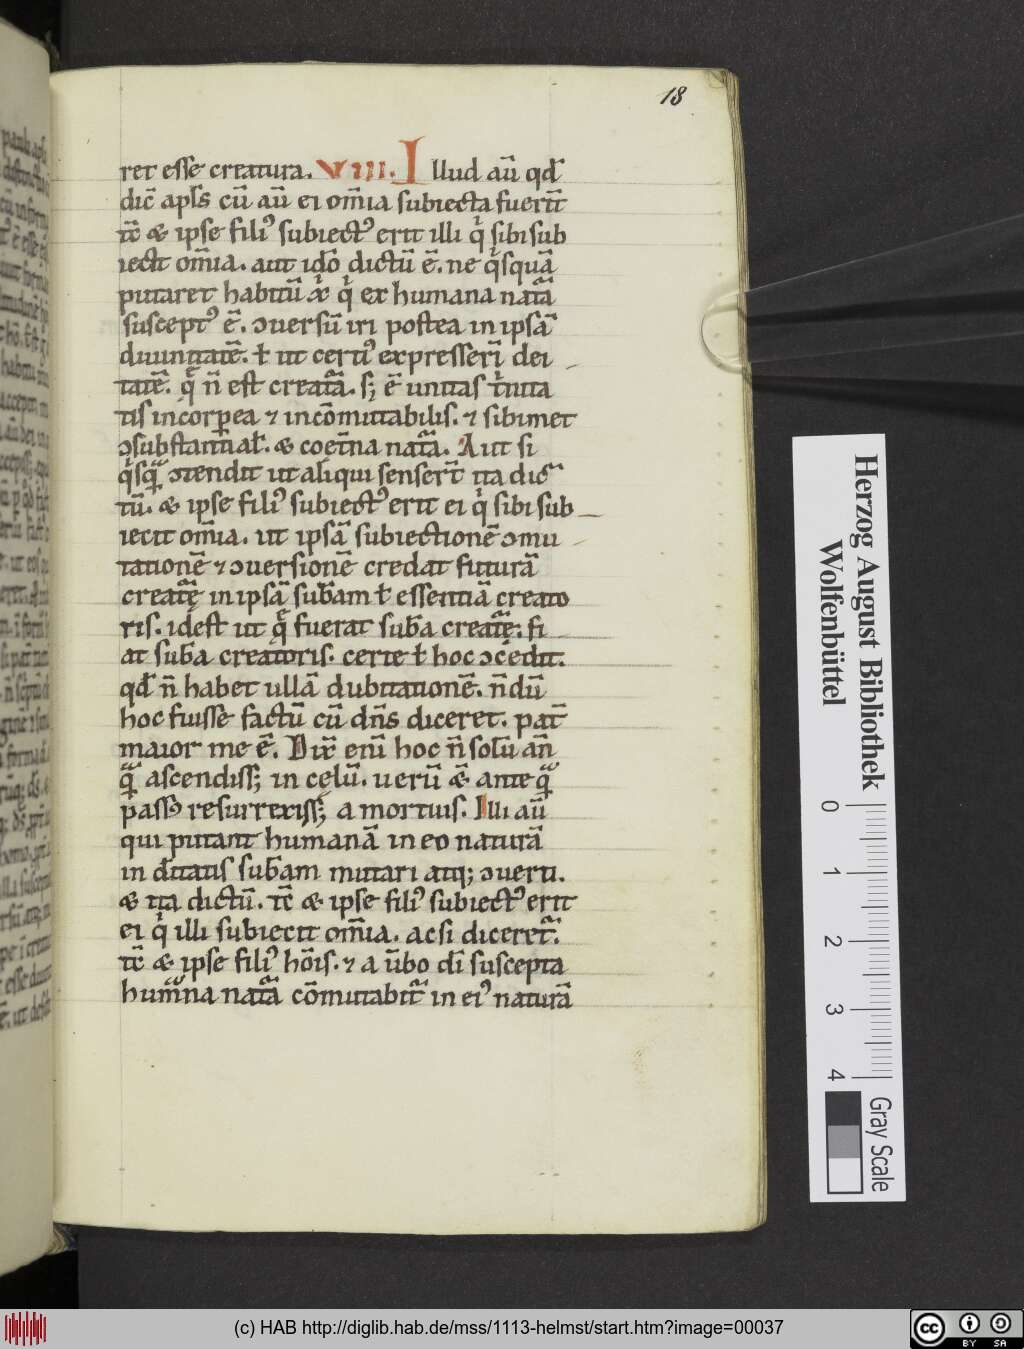 18
ret esse creatura. VIII. Illud aū qd̄
dic̄ apl̄s cū aū ei om̄ia subiecta fueriт̄
tc̄ & ipse filiꝰ subiectꝰ erit illi qͥ sibi sub
iecit om̄ia. aut idō dictū ē. ne qͥsquā
putaret habitū xͥ qͥ ex humana natͣ̄a
susceptꝰ ē. ɔuersū iri postea in ipsā
diuinitatē. ł ut certiꝰ expresserī dei
tatē. q̨ͥ n̄ est creatͣ̄a. s; ē unitas tͥnita
tis incorꝑea ⁊ incōmutabilis. ⁊ sibimet
ɔsubstantial̄. & coet̄na natͣ̄a. Aut si
qͥsqͣ̄ ɔtendit ut aliqui senser̄t ita dicͣ
tū. & ipse filiꝰ subiectꝰ erit ei qͥ sibi sub
iecit om̄ia. ut ipsā subiectionē ɔmu
tationē ⁊ ɔuersionē credat futurā
creatͣ̄ę in ipsā sub̄am ł essentiā creato
ris. idest ut q̨ fuerat sub̄a creatͣ̄ę: fi
at sub̄a creatoris. certe ł hoc ɔcedit.
qd̄ n̄ habet ullā dubitationē. n̄dū
hoc fuisse factū cū dn̄s diceret. pat̄
maior me ē. Dix̄ enī hoc n̄ solū an̄
qͣ̄ ascendiss; in cęlū. uerū &̄ ante qͣ̄
passꝰ resurrexiss; a mortuis. Illi aū
qui putant humanā in eo naturā
in d̄itatis sub̄am mutari atq; ɔuerti.
& ita dictū. tc̄ & ipse filiꝰ subiectꝰ erit
ei qͥ illi subiecit om̄ia. acsi diceret̄ͣ.
tc̄ & ipse filiꝰ hōis. ⁊ a ūbo dī suscepta
humͣ̄na natͣ̄a cōmutabit̄ͣ in eiꝰ naturā
Herzog August Bibliothek
Wolfenbüttel
0
1
2
3
4
Gray Scale
(c) HAB http://diglib.hab.de/mss/1113-helmst/start.htm?image=00037
cc
BY
SA